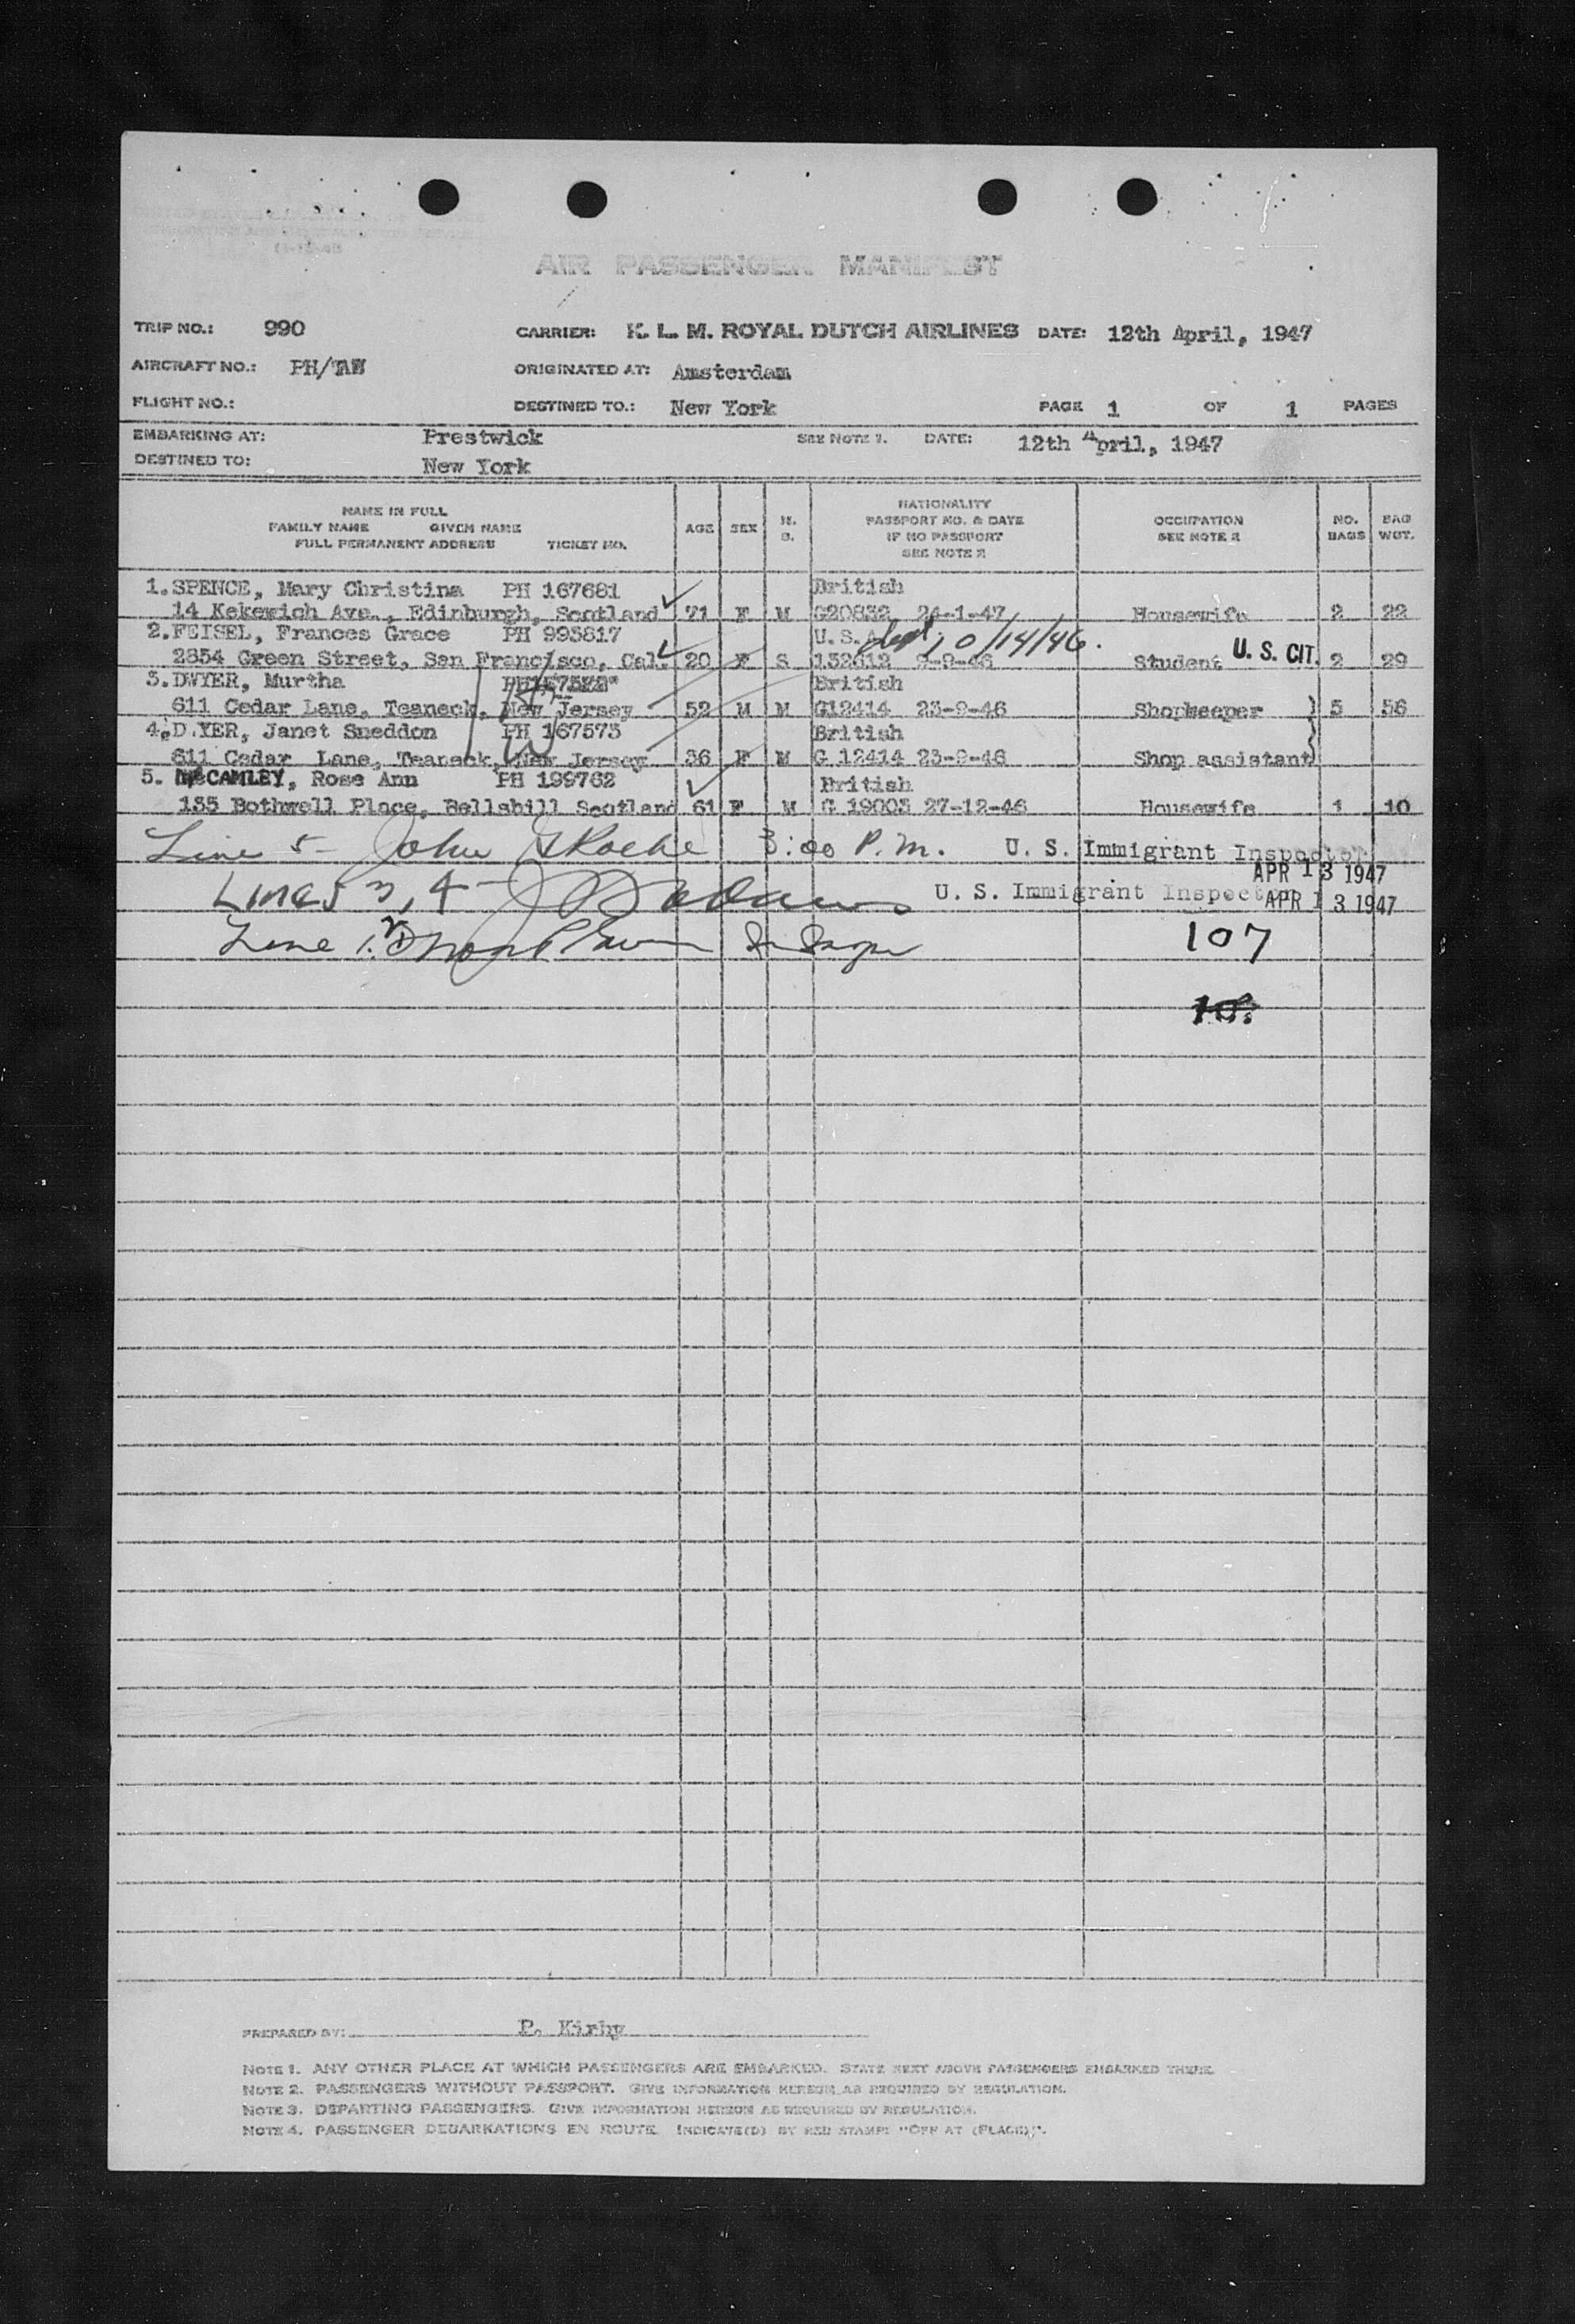 AIR PASSENGER MANIFEST
TRIP NO.: 990 CARRIER: K. L. M. ROYAL DUTCH AIRLINES DATE: 12th April, 1947
AIRCRAFT NO.: PH/ ORIGINATED AT: Amsterdam
FLIGHT NO.: DESTINED TO.: New York PAGE 1 OF 1 PAGES
EMBARKING AT: Prestwick SEE NOTE 1. DATE: 12th April, 1947
DESTINED TO: New York
NAME IN FULL
FAMILY NAME GIVEN NAME
FULL PERMANENT ADDRESS TICKET NO.
AGE
SEX
M.
S.
NATIONALITY
PASSPORT NO. & DATE
IF NO PASSPORT
SEE NOTE 2
OCCUPATION
SEE NOTE 2
NO.
BAGS
BAG
WGT.
1. SPENCE, Mary Christina PH 167681 British
14 Kekewich Ave., Edinburgh, Scotland 71 F M G20832 24-1-47 Housewife 2 22
2. FEISEL, Frances Grace PH 993817 U.S.A. 10/14/46.
2854 Green Street, San Francisco, Cal. 20 F S 132612 9-9-46 Student U. S. CIT. 2 29
3. DWYER, Murtha British
611 Cedar Lane, Teaneck, New Jersey 52 M M G12414 23-9-46 Shopkeeper } 5 56
4. D.YER, Janet Sneddon PH 167573 British
611 Cedar Lane, Teaneck, New Jersey 36 F M G 12414 23-9-46 Shop assistant }
5. McCAMLEY, Rose Ann PH 199762 British
135 Bothwell Place, Bellshill Scotland 61 F M G 19003 27-12-46 Housewife 1 10
Line 5 - John Roche 3:00 P.M. U. S. Immigrant Inspector
APR 13 1947
Lines 3, 4 - U. S. Immigrant Inspector APR 13 1947
Line 1. 2 107
PREPARED BY: P. Kirby
NOTE 1. ANY OTHER PLACE AT WHICH PASSENGERS ARE EMBARKED. STATE NEXT ABOVE PASSENGERS EMBARKED THERE.
NOTE 2. PASSENGERS WITHOUT PASSPORT. GIVE INFORMATION HEREON AS REQUIRED BY REGULATION.
NOTE 3. DEPARTING PASSENGERS. GIVE INFORMATION HEREON AS REQUIRED BY REGULATION.
NOTE 4. PASSENGER DEBARKATIONS EN ROUTE. INDICATE(D) BY RED STAMP: "OFF AT (PLACE)".